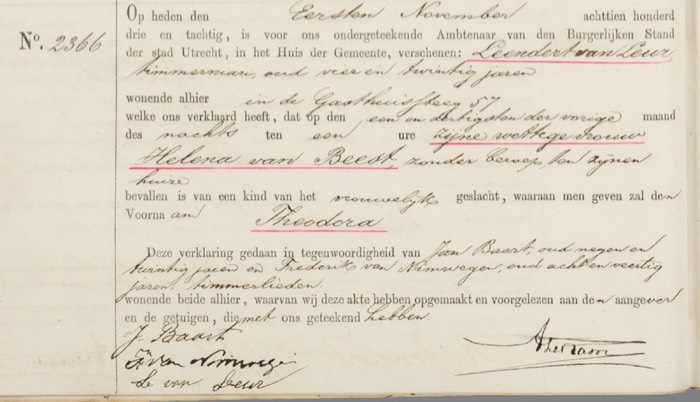 Nº. 2366
Op heden den Eersten November achttien honderd
drie en tachtig, is voor ons ondergeteekende Ambtenaar van den Burgerlijken Stand
der stad Utrecht, in het Huis der Gemeente, verschenen: Leendert van Leur,
timmerman, oud vier en twintig jaren
wonende alhier in de Gasthuissteeg 57
welke ons verklaard heeft, dat op den een en dertigsten der vorige maand
des nachts ten een ure zijne wettige vrouw
Helena van Beest, zonder beroep, ten zijnen
huize
bevallen is van een kind van het vrouwelijk geslacht, waaraan men geven zal den
Voornaam Theodora
Deze verklaring gedaan in tegenwoordigheid van Jan Baart, oud negen en
twintig jaren en Frederik van Nimwegen, oud acht en veertig
jaren, timmerlieden
wonende beide alhier, waarvan wij deze akte hebben opgemaakt en voorgelezen aan den aangever
en de getuigen, die met ons geteekend hebben.
J. Baart
F. van Nimwegen
L. van Leur